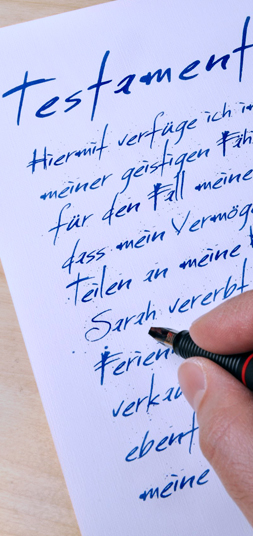 Testament
Hiermit verfüge ich i
meiner geistigen Fäh
für den Fall meine
dass mein Vermög
Teilen an meine
Sarah vererbt
Ferien
verkau
ebenf
meine